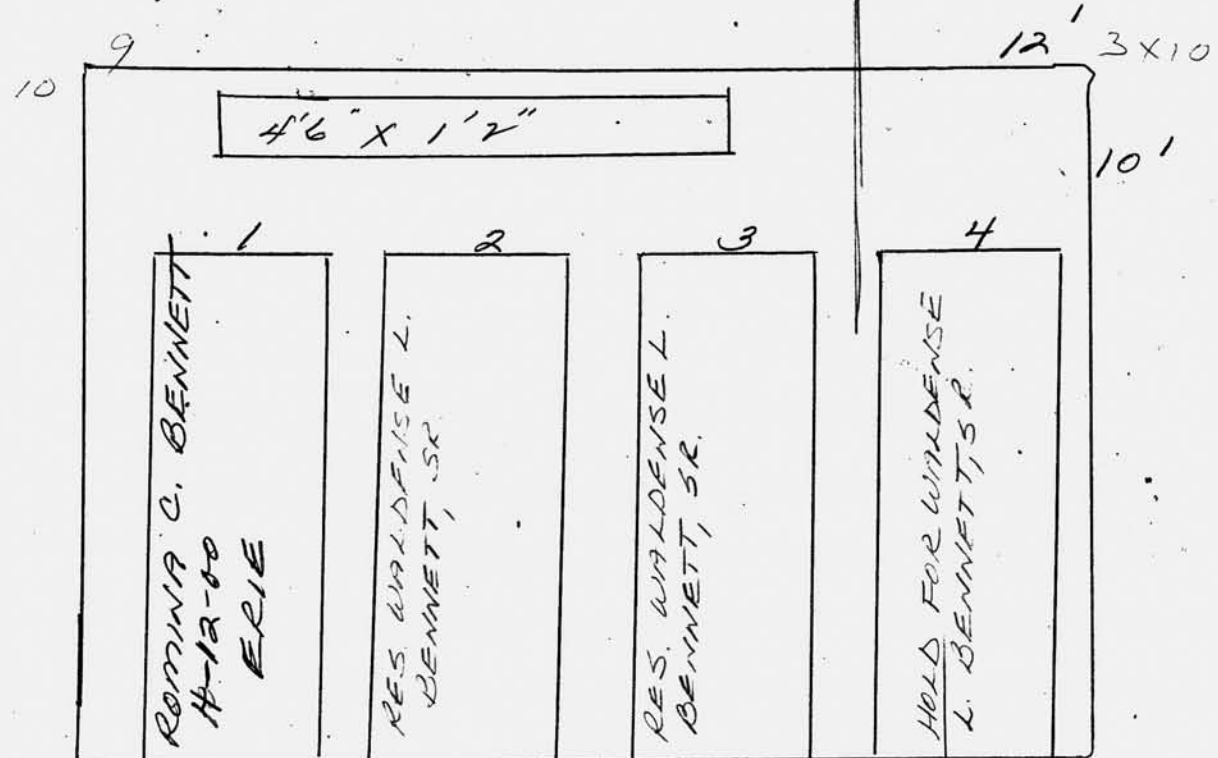 9
12'
3 X 10
10
4'6" X 1'2"
10'
1
2
3
4
ROMINA C. BENNETT
4-12-00
ERIE
RES. WALDENSE L.
BENNETT, SR.
RES. WALDENSE L.
BENNETT, SR.
HOLD FOR WALDENSE
L. BENNETT, SR.